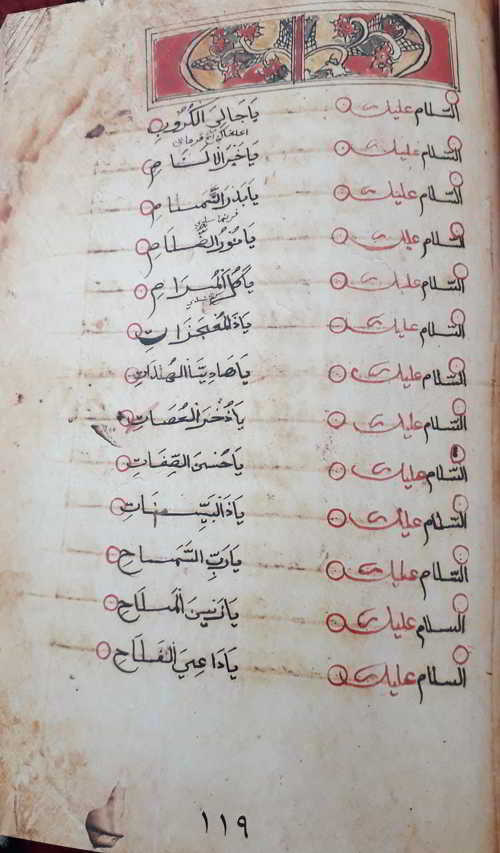 السلام عليك يا جالي الكروب
السلام عليك يا خير الانام
السلام عليك يا بدر التمام
السلام عليك يا نور الظلام
السلام عليك يا كل المرام
السلام عليك يا ذا المعجزات
السلام عليك يا هادينا الهداة
السلام عليك يا ذخر العصات
السلام عليك يا حسن الصفات
السلام عليك يا ذا البينات
السلام عليك يا رب السماح
السلام عليك يا زين الملاح
السلام عليك يا داعي الفلاح
١١٩